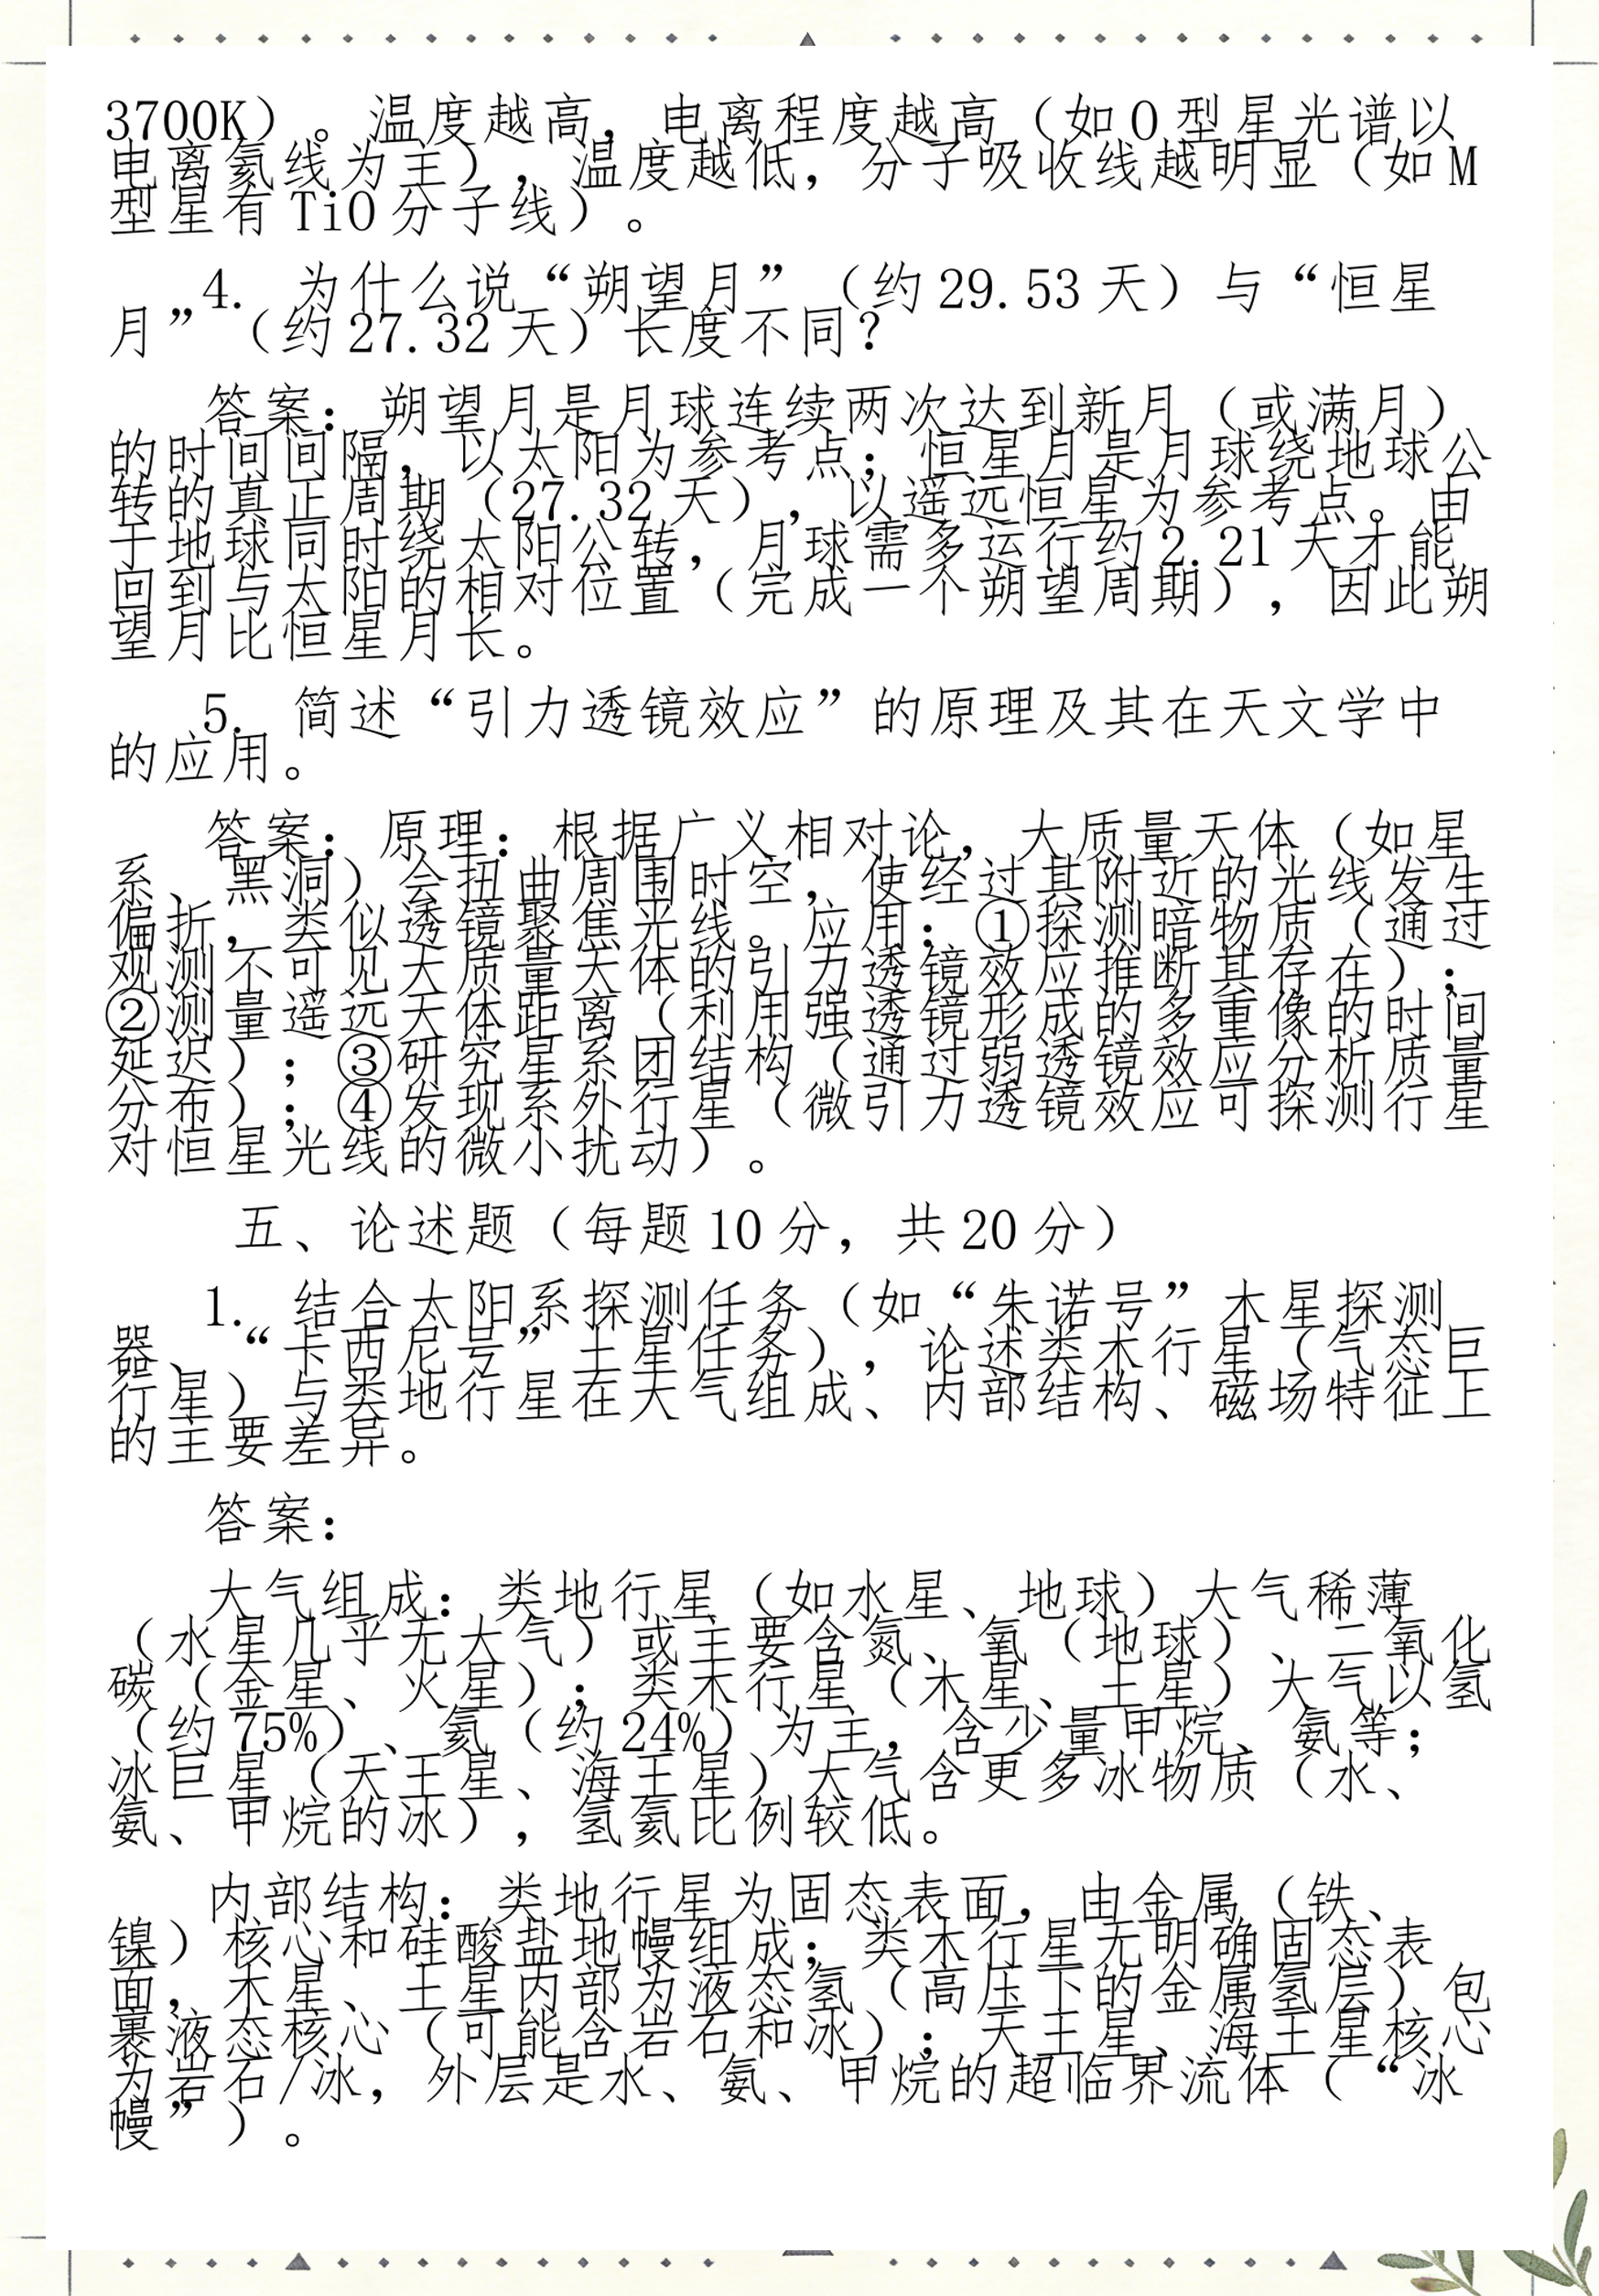 3700K）。温度越高，电离程度越高（如O型星光谱以
电离氦线为主），温度越低，分子吸收线越明显（如M
型星有TiO分子线）。
4. 为什么说“朔望月”（约29.53天）与“恒星
月”（约27.32天）长度不同？
答案：朔望月是月球连续两次达到新月（或满月）
的时间间隔，以太阳为参考点；恒星月是月球绕地球公
转的真正周期（27.32天），以遥远恒星为参考点。由
于地球同时绕太阳公转，月球需多运行约2.21天才能
回到与太阳的相对位置（完成一个朔望周期），因此朔
望月比恒星月长。
5. 简述“引力透镜效应”的原理及其在天文学中
的应用。
答案：原理：根据广义相对论，大质量天体（如星
系、黑洞）会扭曲周围时空，使经过其附近的光线发生
偏折，类似透镜聚焦光线。应用：①探测暗物质（通过
观测不可见大质量天体的引力透镜效应推断其存在）；
②测量遥远天体距离（利用强透镜形成的多重像的时间
延迟）；③研究星系团结构（通过弱透镜效应分析质量
分布）；④发现系外行星（微引力透镜效应可探测行星
对恒星光线的微小扰动）。
五、论述题（每题10分，共20分）
1. 结合太阳系探测任务（如“朱诺号”木星探测
器、“卡西尼号”土星任务），论述类木行星（气态巨
行星）与类地行星在大气组成、内部结构、磁场特征上
的主要差异。
答案：
大气组成：类地行星（如水星、地球）大气稀薄
（水星几乎无大气）或主要含氮、氧（地球）、二氧化
碳（金星、火星）；类木行星（木星、土星）大气以氢
（约75%）、氦（约24%）为主，含少量甲烷、氨等；
冰巨星（天王星、海王星）大气含更多冰物质（水、
氨、甲烷的冰），氢氦比例较低。
内部结构：类地行星为固态表面，由金属（铁、
镍）核心和硅酸盐地幔组成；类木行星无明确固态表
面，木星、土星内部为液态氢（高压下的金属氢层）包
裹液态核心（可能含岩石和冰）；天王星、海王星核心
为岩石/冰，外层是水、氨、甲烷的超临界流体（“冰
幔”）。